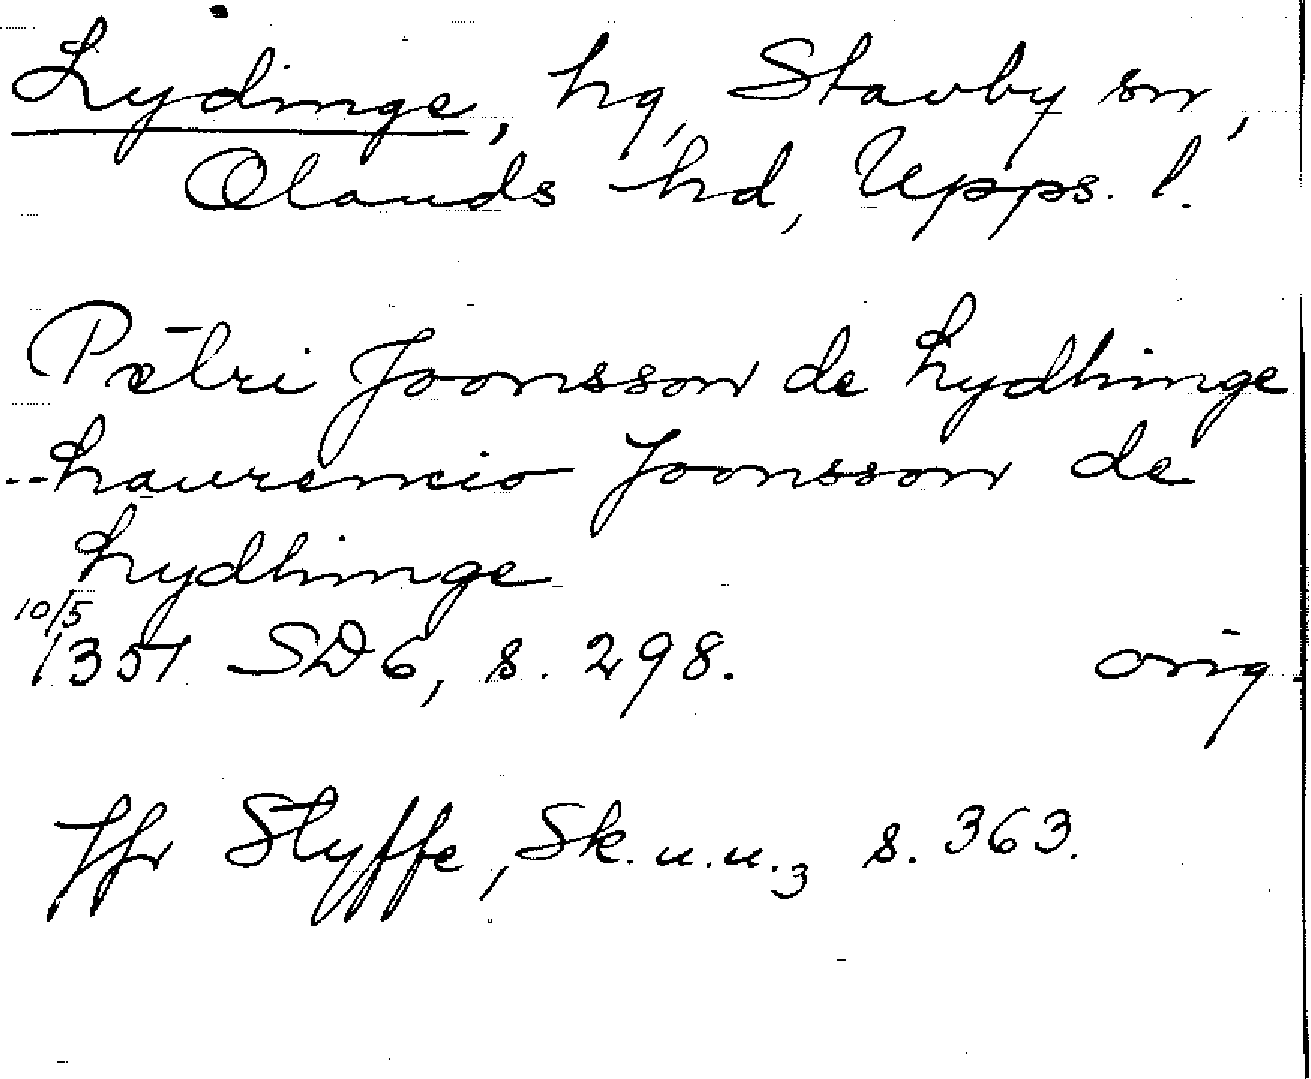 Lydinge, hg, Stavby sn,
Olands hd, Upps. l.
Petri Joonsson de Lydhinge
-- Laurencio Joonsson de
Lydhinge
10/5
1351 SD 6, s. 298. orig.
Jfr Styffe, Sk.u.u.3 s. 363.